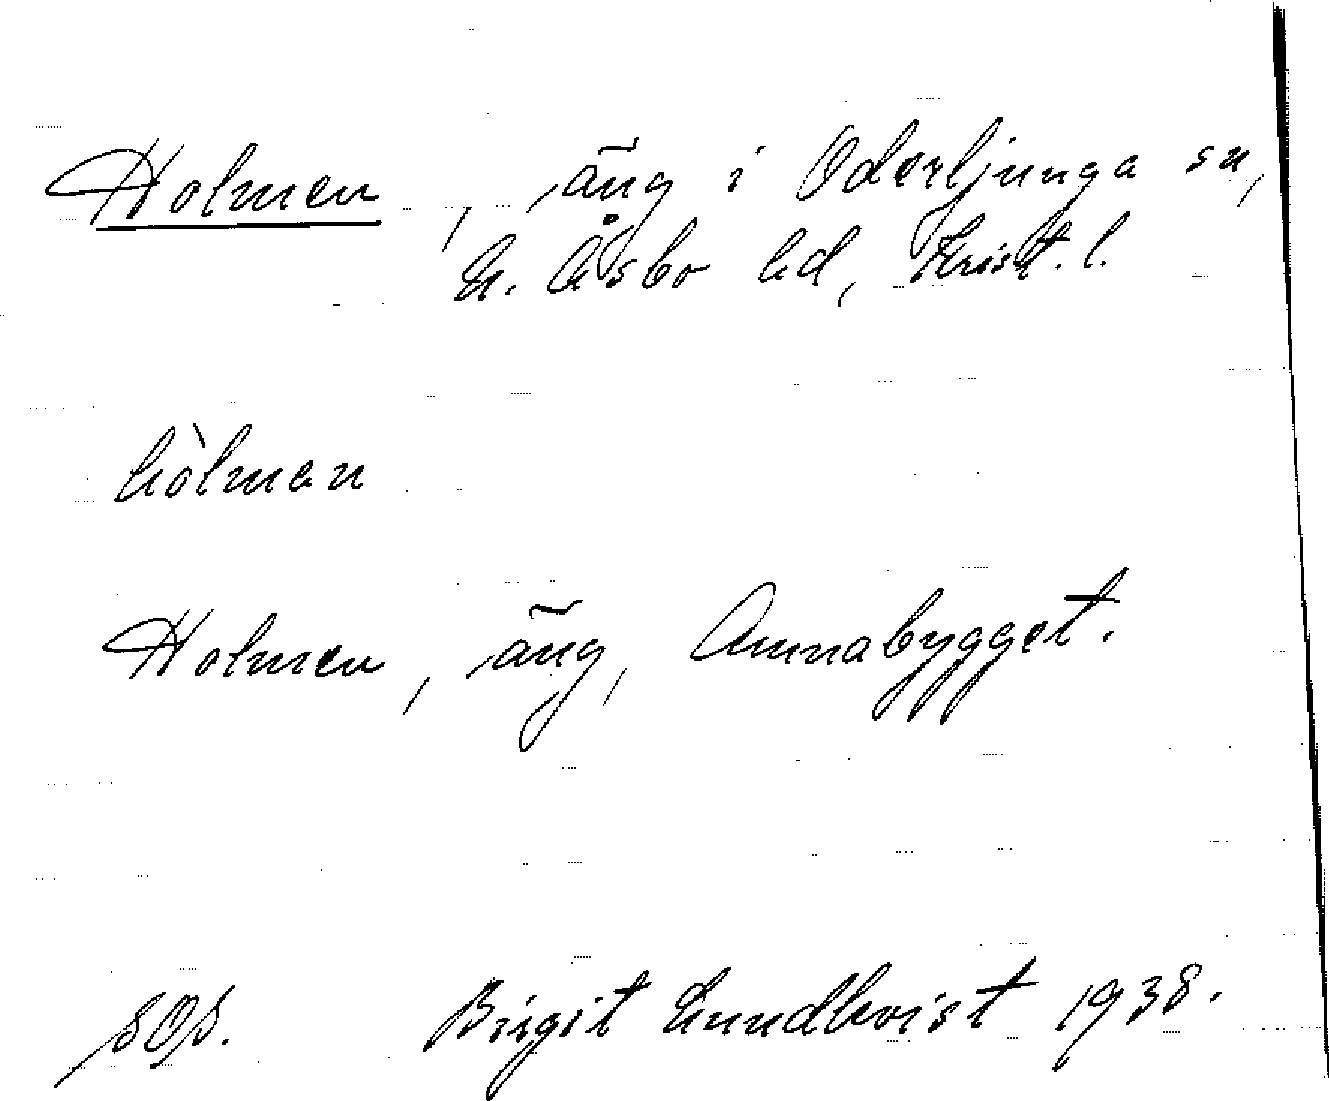 Holmen, äng i Oderljunga sn,
N. Åsbo hd, Krist. l.
hòlman
Holmen, äng, Annabygget.
Birgit Lundkvist 1938.